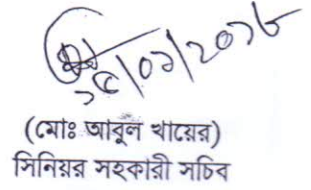 ২৫/০১/২০১৮
(মোঃ আবুল খায়ের)
সিনিয়র সহকারী সচিব